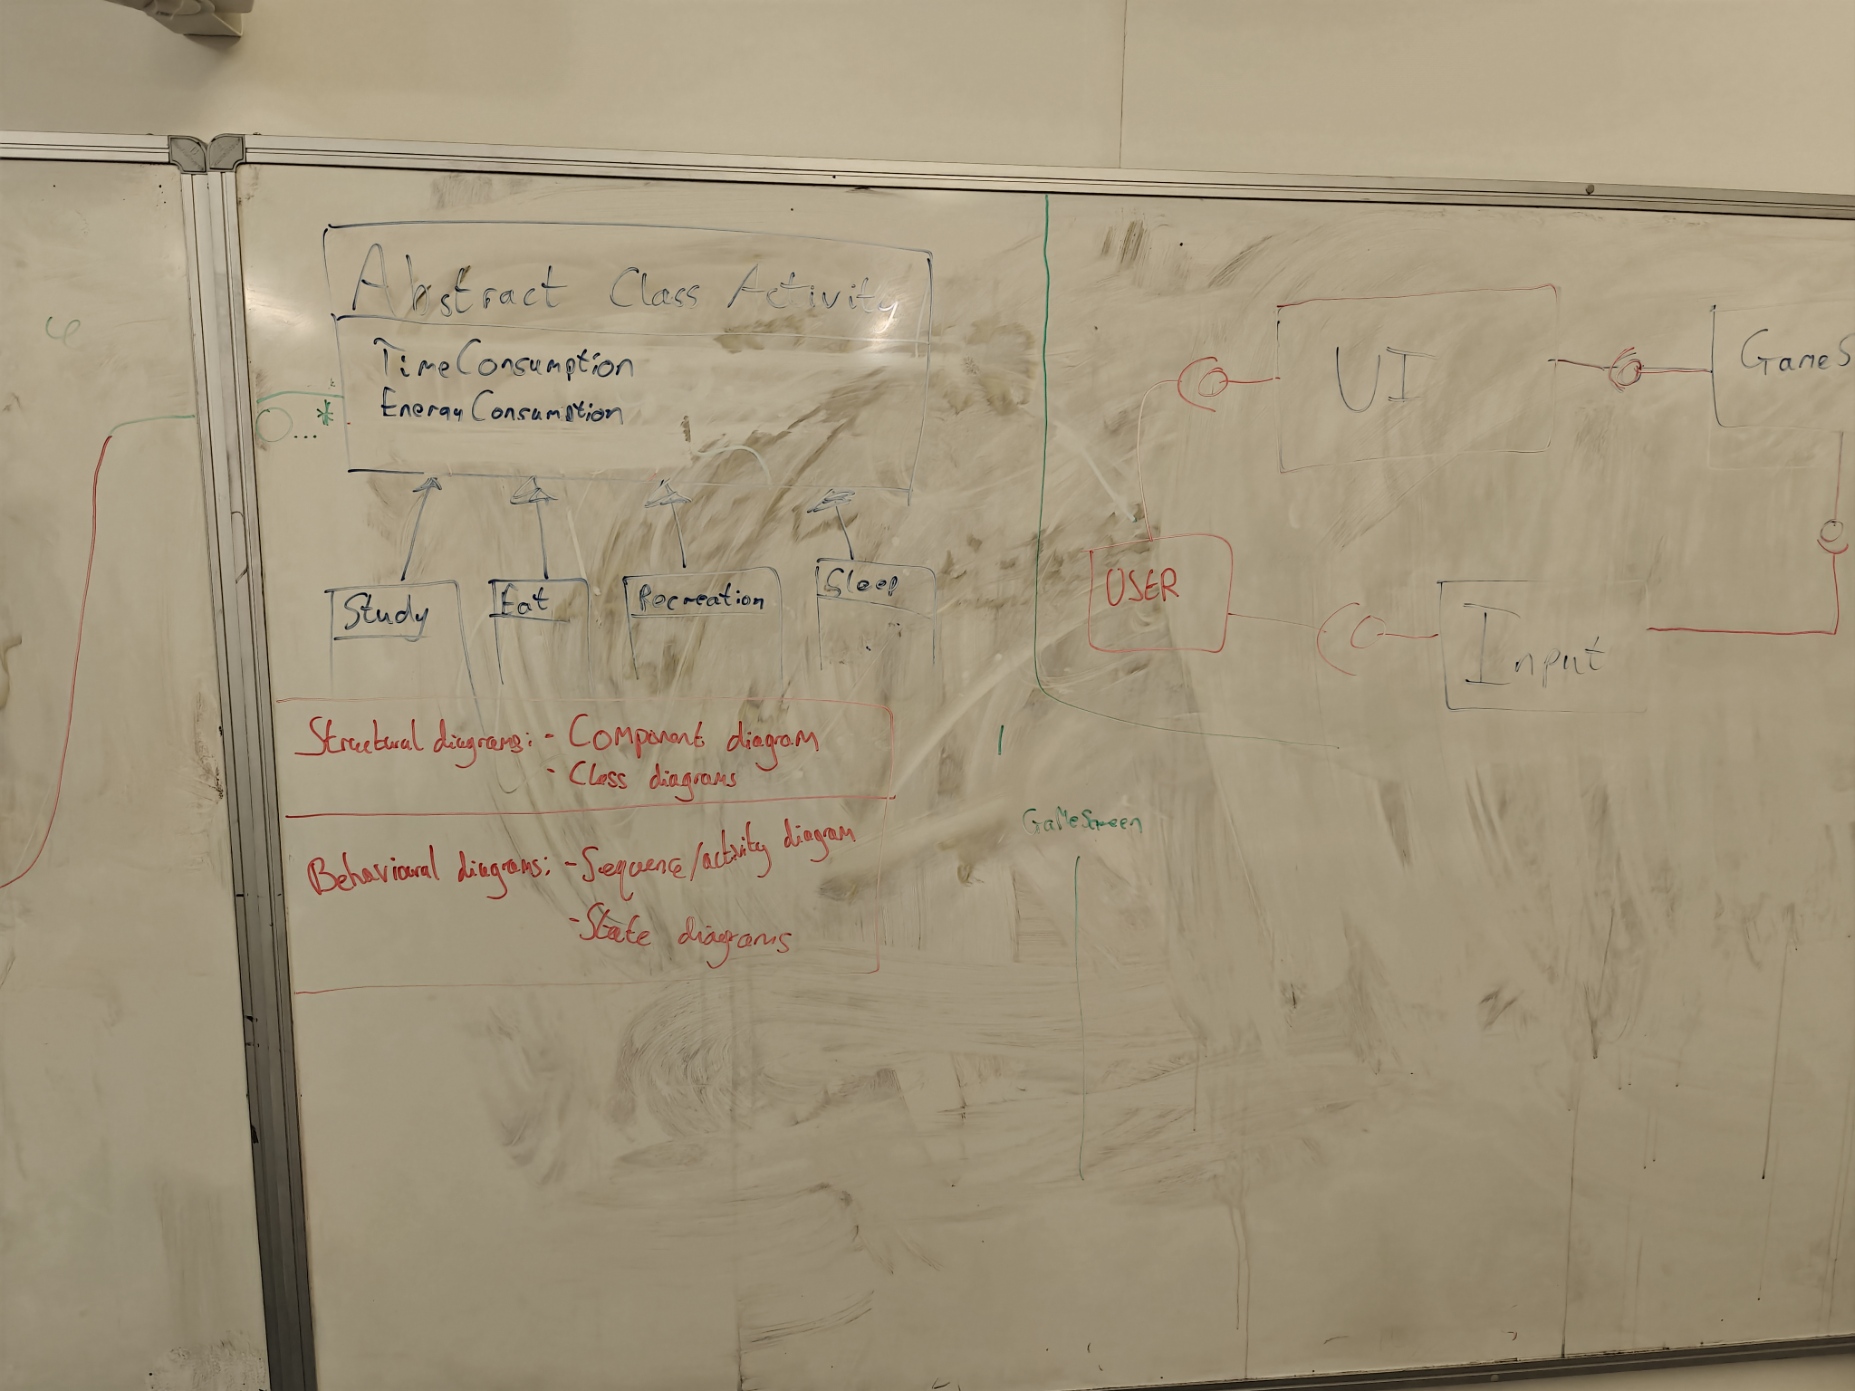 Abstract Class Activity
TimeConsumption
EnergyConsumption
0...*
Study
Eat
Recreation
Sleep
Structural diagrams: - Component diagram
- Class diagrams
Behavioural diagrams: - Sequence/activity diagram
- State diagrams
UI
GameS
USER
Input
GameScreen